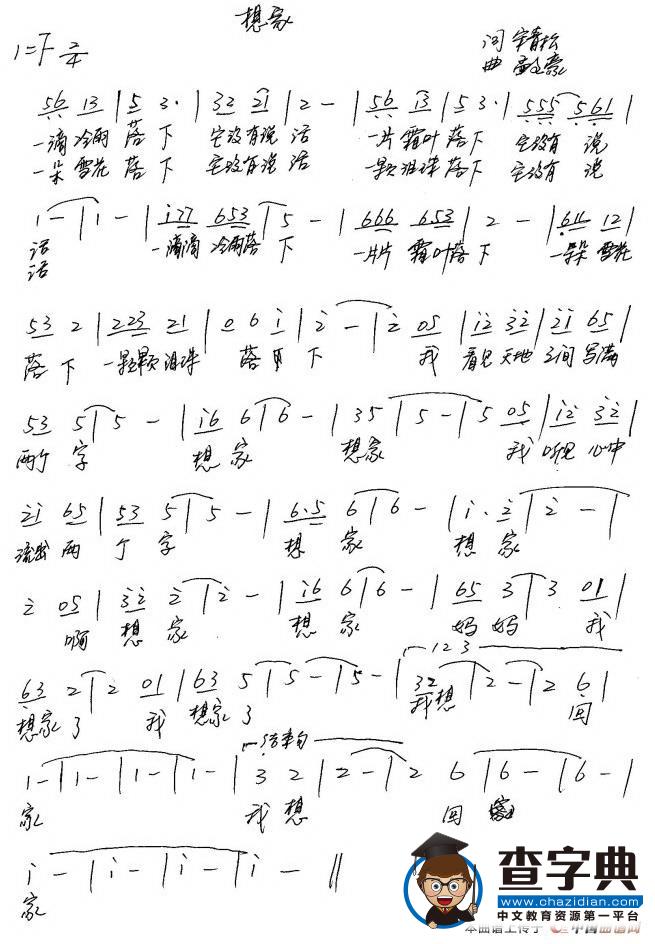 想家
1=F 2/4
词 宇青松
曲
56 13 | 5 3· | 32 21 | 2 - | 56 i3 | 53· | 555 561 |
一滴冷雨 落 下 它没有说 话 一片霜叶落下 它没有 说
一朵雪花 落 下 它没有说 话 一颗泪珠落下 它没有 说
1 - | 1 - | i77 653 | 5 - | 666 653 | 2 - | 611 12 |
话 一滴滴 冷雨落 下 一片片 霜叶落 下 一朵朵 雪花
话
53 2 | 223 21 | 0 6 i | 2 - | 2 05 | i2 32 | 2i 65 |
落 下 一颗颗 泪珠 落 下 我 看见 天地 之间 写满
53 5 | 5 - | i6 6 | 6 - | 35 | 5 - | 5 05 | i2 32 |
两个 字 想 家 想家 我 听见 心中
2i 65 | 53 5 | 5 - | 6·5 6 | 6 - | i· 2 | 2 - |
流出 两 个 字 想 家 想 家
2 05 | 32 2 | 2 - | i6 6 | 6 - | 65 3 | 3 01 |
啊 想 家 想 家 妈 妈 我
123
63 2 | 2 01 | 63 5 | 5 - | 5 - | 32 | 2 - | 2 6 |
想家 了 我 想家 了 我想 回
结束句
1 - | 1 - | 1 - | 1 - | 3 2 | 2 - | 2 6 | 6 - | 6 - |
家 我 想 回
i - | i - | i - | i - ‖
家
查字典
www.chazidian.com
中文教育资源第一平台
本曲谱上传于 中国曲谱网